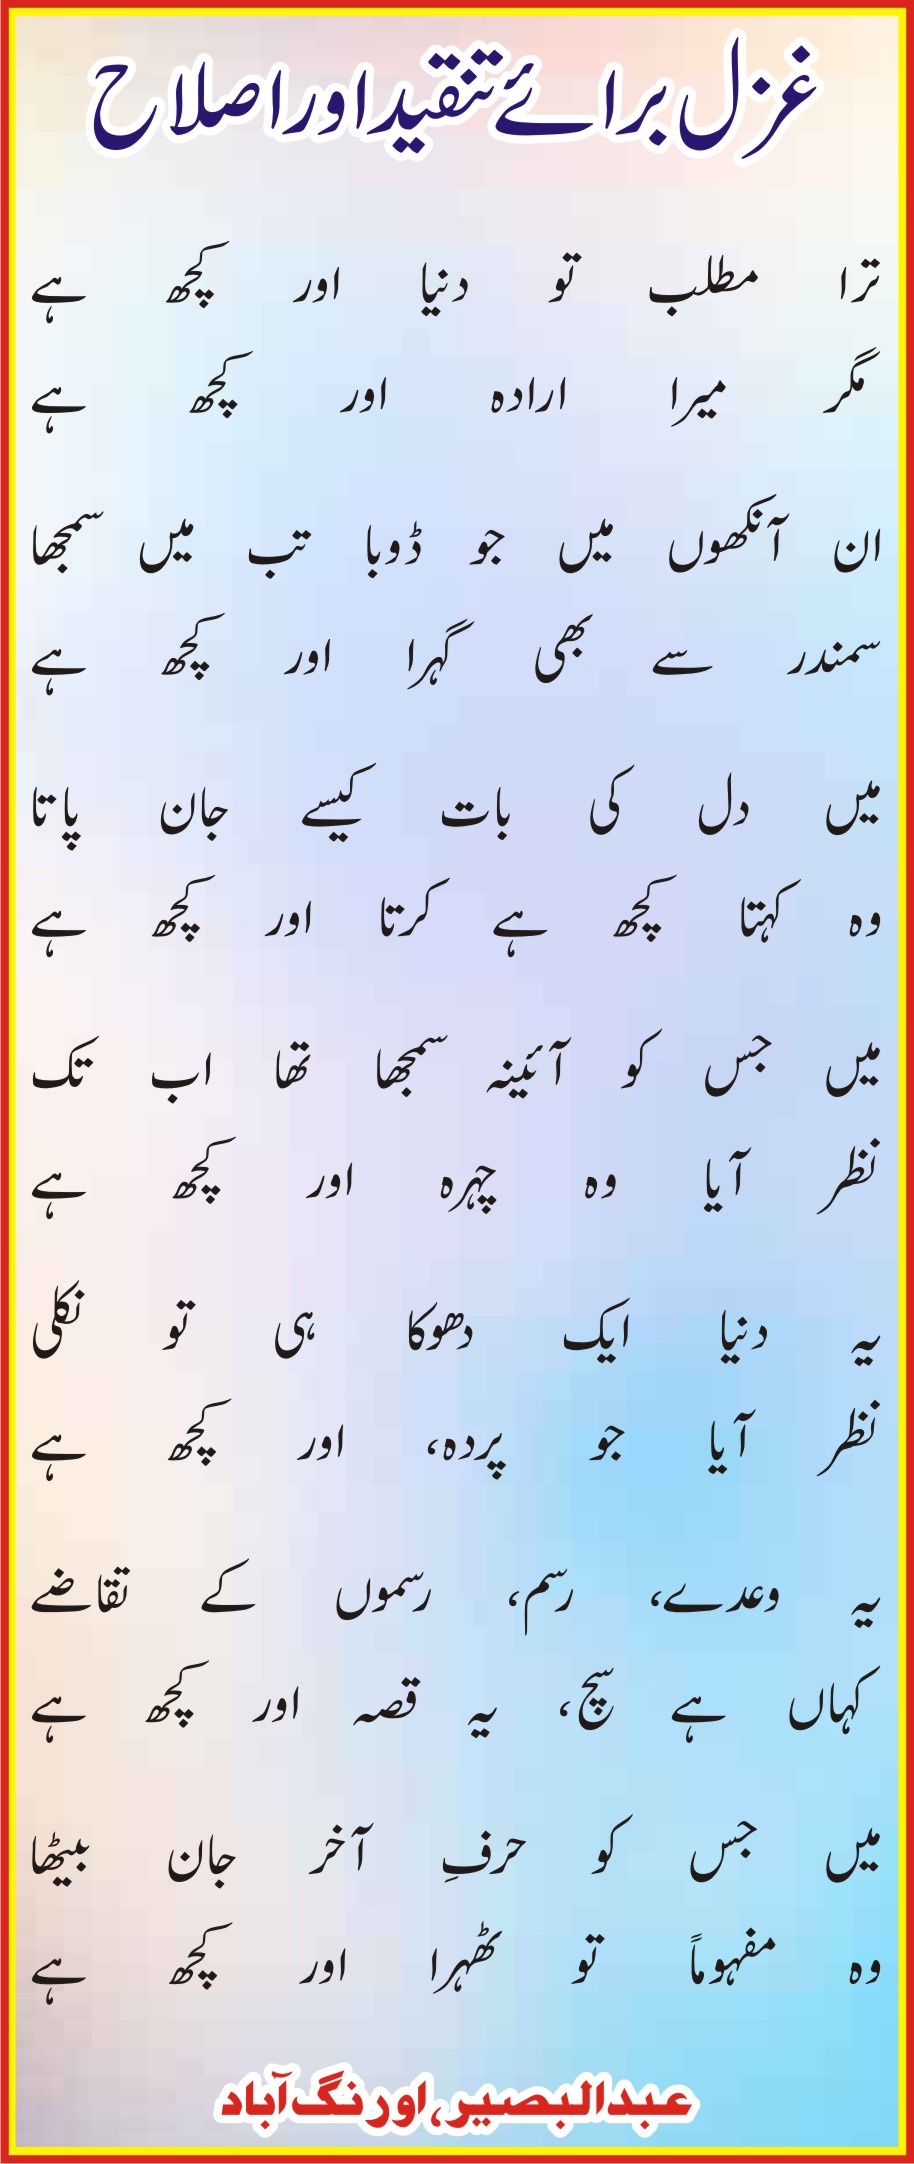 غزل برائے تنقید اور اصلاح
ترا مطلب تو دنیا اور کچھ ہے
مگر میرا ارادہ اور کچھ ہے
ان آنکھوں میں جو ڈوبا تب میں سمجھا
سمندر سے بھی گہرا اور کچھ ہے
میں دل کی بات کیسے جان پاتا
وہ کہتا کچھ ہے کرتا اور کچھ ہے
میں جس کو آئینہ سمجھا تھا اب تک
نظر آیا وہ چہرہ اور کچھ ہے
یہ دنیا ایک دھوکا ہی تو نکلی
نظر آیا جو پردہ، اور کچھ ہے
یہ وعدے، رسم، رسموں کے تقاضے
کہاں ہے سچ، یہ قصہ اور کچھ ہے
میں جس کو حرفِ آخر جان بیٹھا
وہ مفہوماً تو ٹھہرا اور کچھ ہے
عبدالبصیر، اورنگ آباد